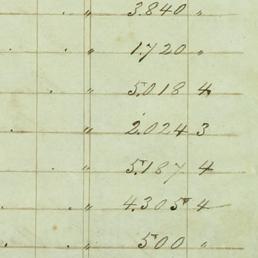 " 3.840 "
" 1.720 "
" 5.018 4
" 2.024 3
" 5.187 4
" 4.305 4
" 500 "